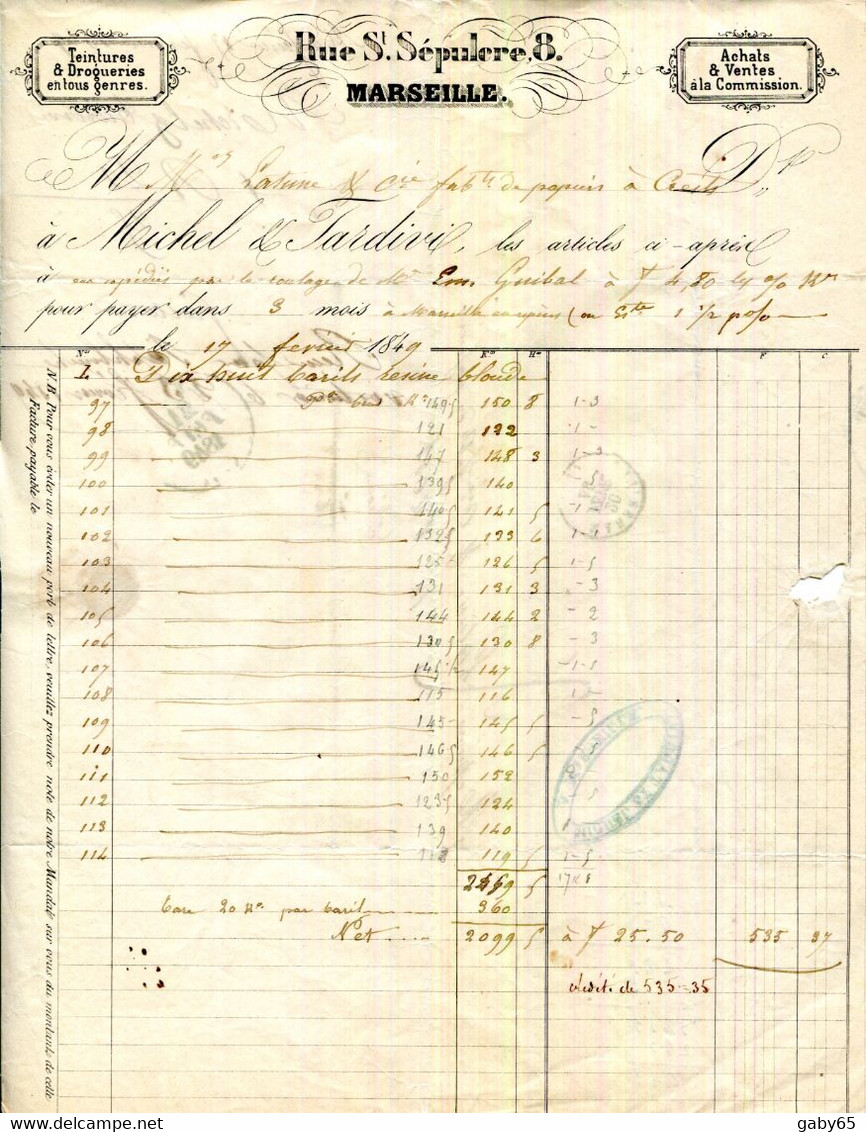 Teintures
& Drogueries
en tous genres.
Rue St. Sépulcre, 8.
MARSEILLE.
Achats
& Ventes
à la Commission.
M Mrs Latune & Cie fabts de papiers à Crest Dt
à Michel & Tardivi, les articles ci-après
à eux expédiés par le roulage de Mr Em. Guibal à f 4,80 les %
pour payer dans 3 mois à Marseille en espèces (ou 1 1/2 p%
le 17 fevrier 1849
No Kos Hos F C
L Dix huit barils resine blonde
97 149 5 150 8 1-3
98 121 122 1-
99 147 148 3 1-3
100 139 5 140 -5
101 140 5 141 5 -1
102 132 5 133 6 1-1
103 125 126 5 1-5
104 131 131 3 -3
105 144 144 2 -2
106 130 5 130 8 -3
107 145 1/2 147 -1-5
108 115 116 1-
109 145 145 5 -5
110 146 5 146 5
111 150 152
112 123 5 124 -5
113 139 140 1
114 118 119 5 1-5
2459 5 17 K 5
tare 20 Ko par baril 360
Net 2099 5 à f 25.50 535 37
crédité de 535-35
N.B. Pour vous éviter un nouveau port de lettre, veuillez prendre note de notre Mandat sur vous du montant de celle
Facture payable le
gaby65